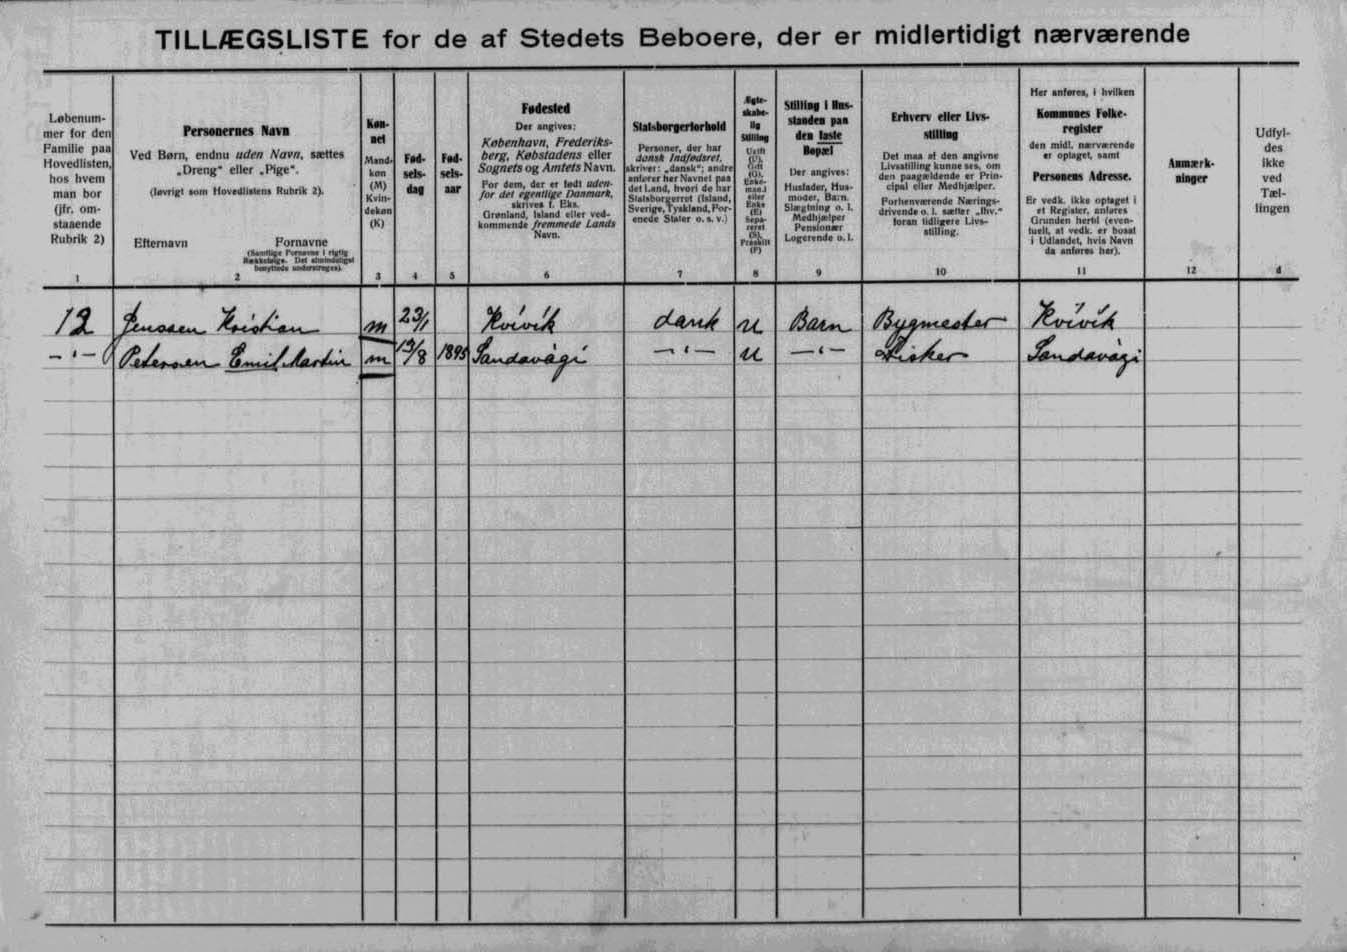 TILLÆGSLISTE for de af Stedets Beboere, der er midlertidigt nærværende
Løbenum-
mer for den
Familie paa
Hovedlisten,
hos hvem
man bor
(jfr. om-
staaende
Rubrik 2)
1
Personernes Navn
Ved Børn, endnu uden Navn, sættes
„Dreng“ eller „Pige“.
(Iøvrigt som Hovedlistens Rubrik 2).
Efternavn Fornavne
(Samtlige Fornavne i rigtig
Rækkefølge. Det almindeligst
benyttede understreges).
2
Køn-
net
Mand-
køn
(M)
Kvin-
dekøn
(K)
3
Fød-
sels-
dag
4
Fød-
sels-
aar
5
Fødested
Der angives:
København, Frederiks-
berg, Købstadens eller
Sognets og Amtets Navn.
For dem, der er født uden-
for det egentlige Danmark,
skrives f. Eks.
Grønland, Island eller ved-
kommende fremmede Lands
Navn.
6
Statsborgerforhold
Personer, der har
dansk Indfødsret,
skriver: „dansk“; andre
anfører her Navnet paa
det Land, hvori de har
Statsborgerret (Island,
Sverige, Tyskland, For-
enede Stater o. s. v.)
7
Ægte-
skabe-
lig
Stilling
Ugift
(U),
Gift
(G),
Enke-
mand
eller
Enke
(E)
Sepa-
reret
(S),
Fraskilt
(F)
8
Stilling i Hus-
standen paa
den faste
Bopæl
Der angives:
Husfader, Hus-
moder, Barn,
Slægtning o. l.
Medhjælper
Pensionær
Logerende o. l.
9
Erhverv eller Livs-
stilling
Det maa af den angivne
Livsstilling kunne ses, om
den paagældende er Prin-
cipal eller Medhjælper.
Forhenværende Nærings-
drivende o. l. sætter „fhv.“
foran tidligere Livs-
stilling.
10
Her anføres, i hvilken
Kommunes Folke-
register
den midl. nærværende
er optaget, samt
Personens Adresse.
Er vedk. ikke optaget i
et Register, anføres
Grunden hertil (even-
tuelt, at vedk. er bosat
i Udlandet, hvis Navn
da anføres her).
11
Anmærk-
ninger
12
Udfyl-
des
ikke
ved
Tæl-
lingen
d
12 Jenssen Kristian m 23/1 Kvívík dansk U Barn Bygmester Kvívík
—"— Petersen Emil Martin m /8 1895 Sandavági —"— U —"— Fisker Sandavági